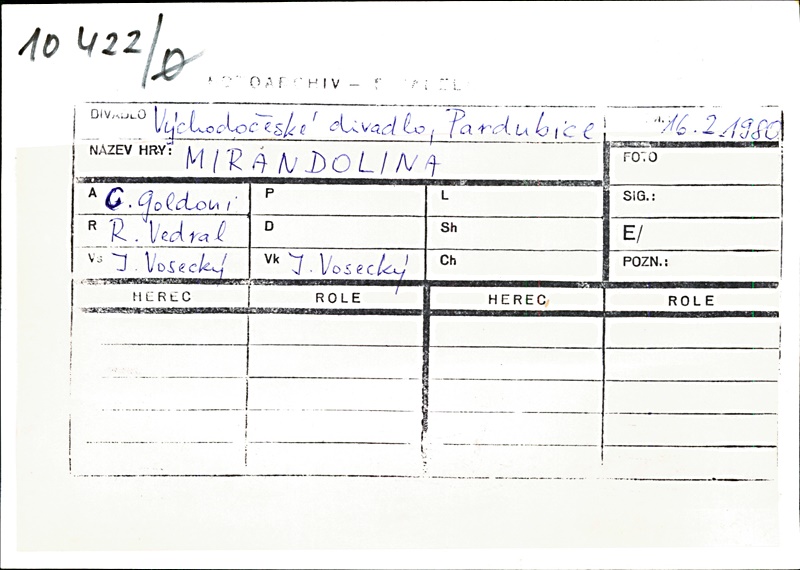 10 422/0
DIVADLO Východočeské divadlo, Pardubice 16.2.1980
NÁZEV HRY: MIRANDOLINA FOTO
A C. Goldoni P L SIG.:
R R. Vedral D Sh E/
Vs J. Vosecký Vk J. Vosecký Ch POZN.:
HEREC ROLE HEREC ROLE